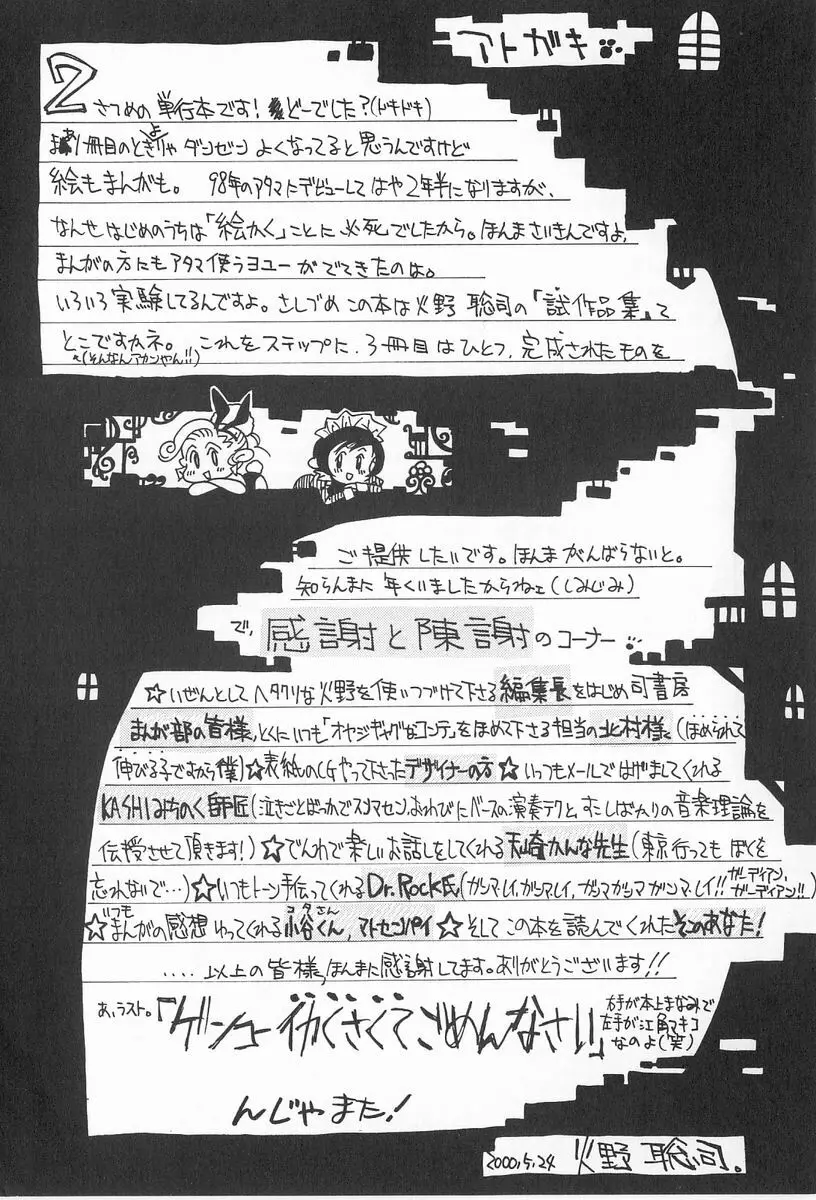 アトガキ
2さつめの単行本です！どーでした？（ドキドキ）
1冊目のときよりゃダンゼンよくなってると思うんですけど
絵もまんがも。98年のアタマにデビューしてはや2年半になりますが、
なんせはじめのうちは「絵かく」ことに必死でしたから。ほんまさいきんですよ、
まんがの方にもアタマ使うヨユーがでてきたのは。
いろいろ実験してるんですよ。さしづめこの本は火野聡司の「試作品集」て
とこですカネ。これをステップに、3冊目はひとつ、完成されたものを
（そんなんアカンやん！！）
ご提供したいです。ほんまがんばらないと。
知らんまに年くいましたからねェ（しみじみ）
で、感謝と陳謝のコーナー
☆いぜんとしてヘタクソな火野を使いつづけて下さる編集長をはじめ司書房
まんが部の皆様、とくにいつも「オヤジギャグなコンテ」をほめて下さる担当の北村様（ほめられて
伸びる子ですから僕）☆表紙のCGやって下さったデザイナーの方☆いっつもメールではげましてくれる
KASHIみちのく師匠（泣きごとばっかでスンマセン、おわびにベースの演奏テクと、すこしばかりの音楽理論を
伝授させて頂きます！）☆でんわで楽しいお話しをしてくれる天崎かんな先生（東京行ってもぼくを
忘れないで…）☆いつもトーン手伝ってくれるDr.Rock氏（ガンマ・レイ、ガンマレイ、ガンマガンマガンマ・レイ！！ガーディアン、ガーディアン！！）
☆いつもまんがの感想ゆってくれる小谷くん、マトセンパイ☆そしてこの本を読んでくれたそこのあなた！
コタさん
‥‥以上の皆様、ほんまに感謝してます。ありがとうございます！！
あ、ラスト。「ゲンコーイカくさくてごめんなさい」
右手が本上まなみで
左手が江角マキコ
なのよ（笑）
んじゃまた！
2000,5,24 火野聡司。